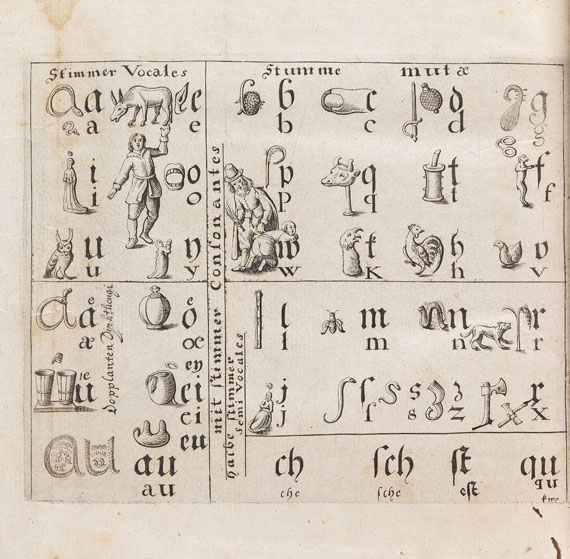 Stimmer Vocales
a a e
a e
i o
i o
u y
u y
Stumme mutæ
b c d g
b c d g
p q t f
p q t f
w k h v
w k h v
mit stimmer Consonantes
æ o
æ œ
Dopplanten Dyphthongi
ü ei
ey
ei
eu
au au
au
halbe stimmer
Semi vocales
l m n r
l m n r
j ſ s z x
j ſ s z x
ch ſch ſt qu
che ſche eſt qu